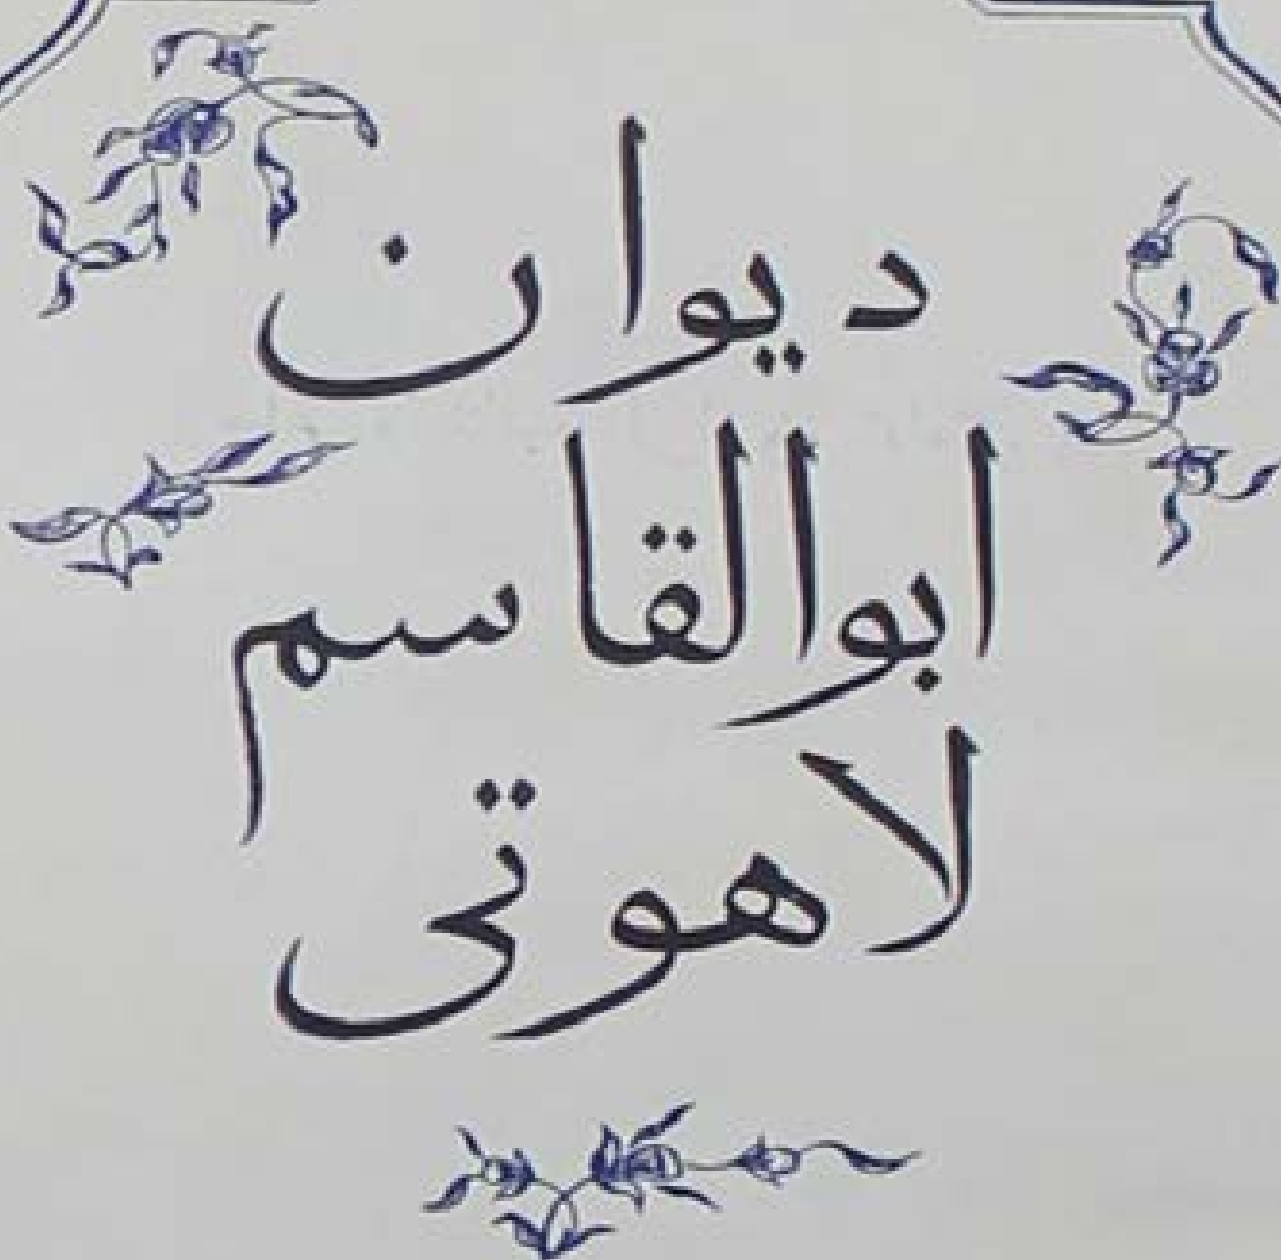 دیوان
ابوالقاسم
لاهوتی